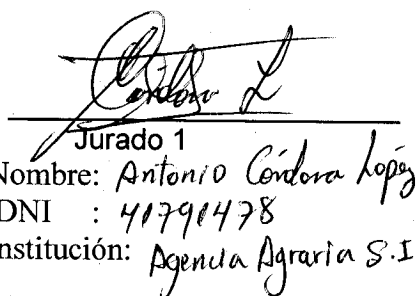 Cordova L
Jurado 1
Nombre: Antonio Córdova López
DNI : 41791478
nstitución: Agencia Agraria S.I